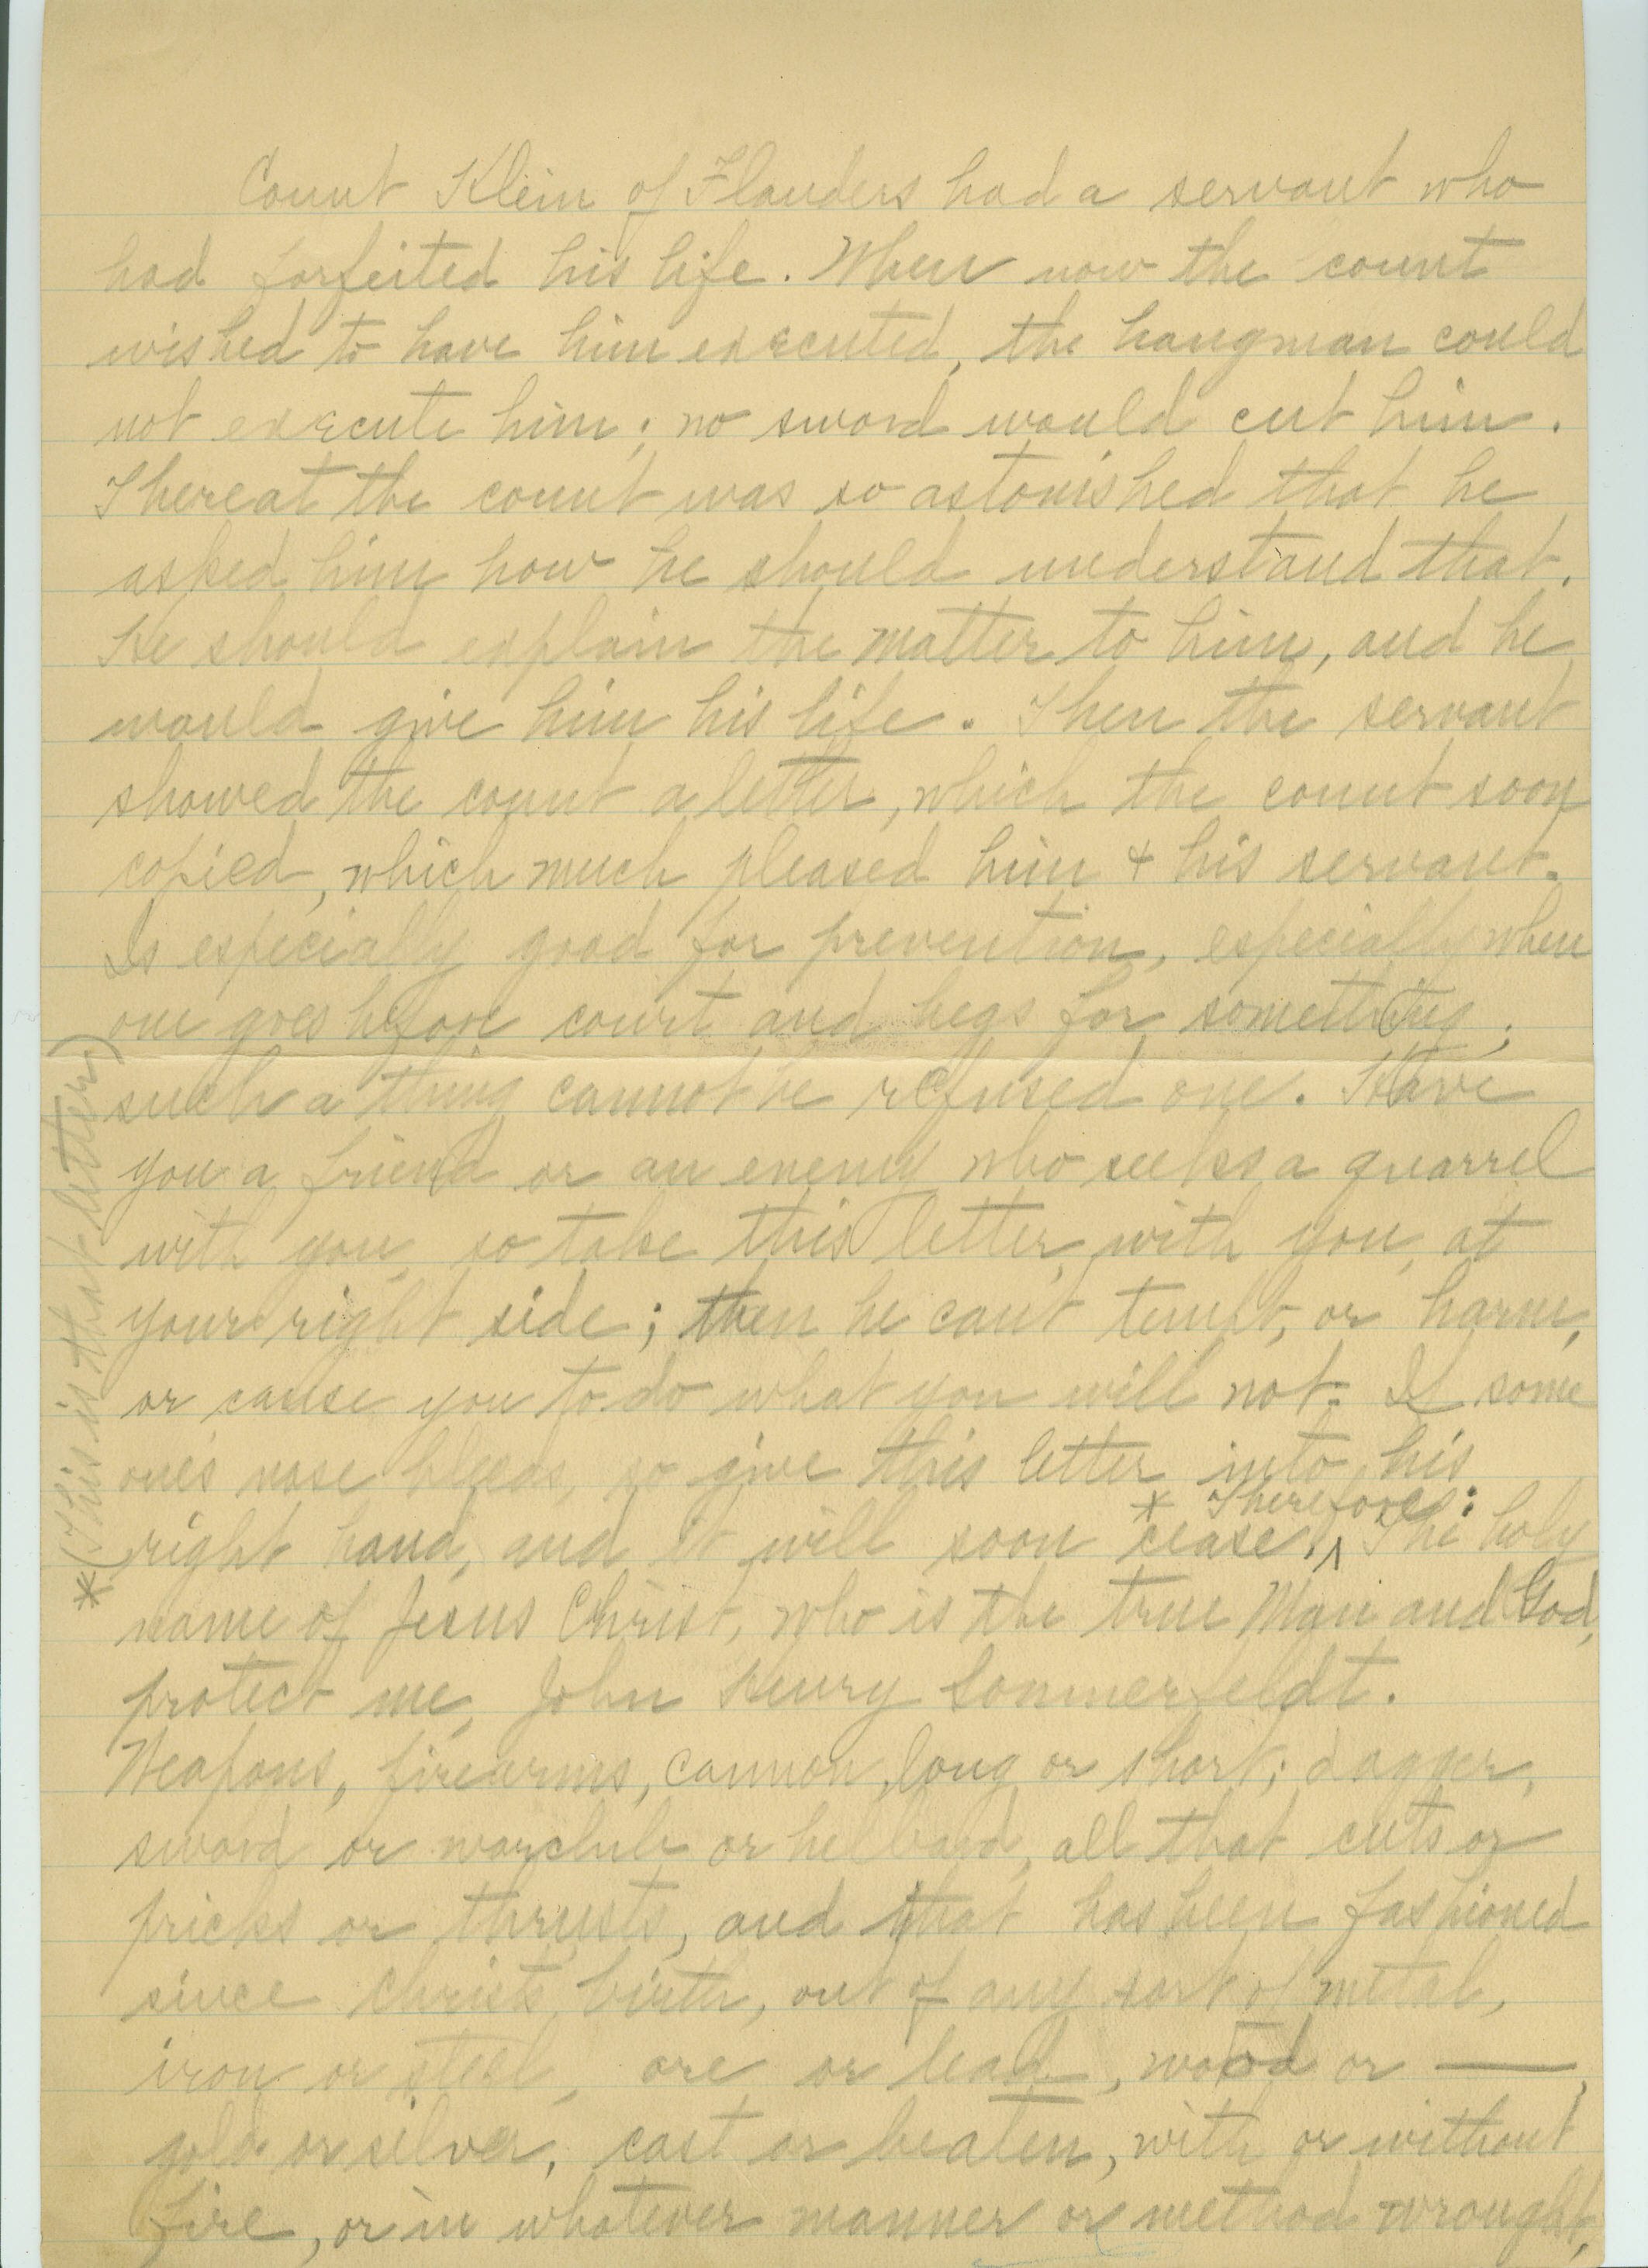 Count Klein of Flanders had a servant who
had forfeited his life. When now the count
wished to have him executed, the hangman could
not execute him; no sword would cut him.
Thereat the count was so astonished that he
asked him how he should understand that.
He should explain the matter to him, and he
would give him his life. Then the servant
showed the count a letter, which the count soon
copied, which much pleased him & his servant.
Is especially good for prevention, especially when
one goes before court and begs for something;
such a thing cannot be refused one. Have
you a friend or an enemy who seeks a quarrel
with you, so take this letter with you, at
your right side; then he can't tempt, or harm,
or cause you to do what you will not. If some
one's nose bleeds, so give this letter into his
* Therefore:
right hand, and it will soon cease. ^ The holy
name of Jesus Christ, who is the true Man and God,
protect me, John Henry Sommerfeldt.
Weapons, firearms, cannon, long or short; dagger,
sword or warclub or helbard, all that cuts or
pricks or thrusts, and that has been fashioned
since Christ's birth, out of any sort of metal,
iron or steel, ore or lead, wood or ——,
gold or silver, cast or beaten, with or without
fire, or in whatever manner or method wrought,
* (This is that letter)